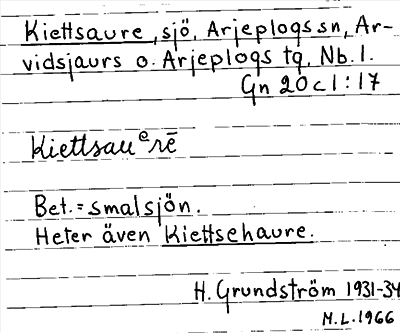 Kiettsaure, sjö, Arjeplogs sn, Ar-
vidsjaurs o. Arjeplogs tg, Nb. l.
Gn 20 c 1 : 17
Kiettsauᵉrē
Bet. = smalsjön.
Heter även Kiettsehaure.
H. Grundström 1931-34
M.L. 1966